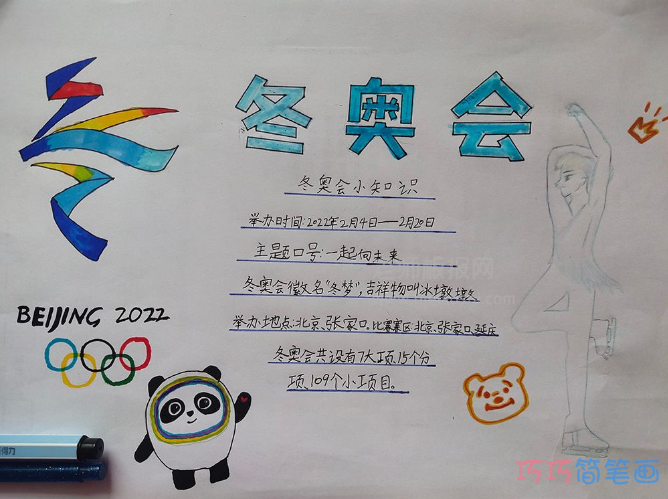 冬奥会
冬奥会小知识
举办时间:2022年2月4日——2月20日
主题口号:一起向未来
冬奥会徽名"冬梦",吉祥物叫冰墩墩
举办地点:北京、张家口,比赛赛区北京、张家口、延庆
冬奥会共设有7大项,15个分
项,109个小项目。
BEIJING 2022
巧巧简笔画